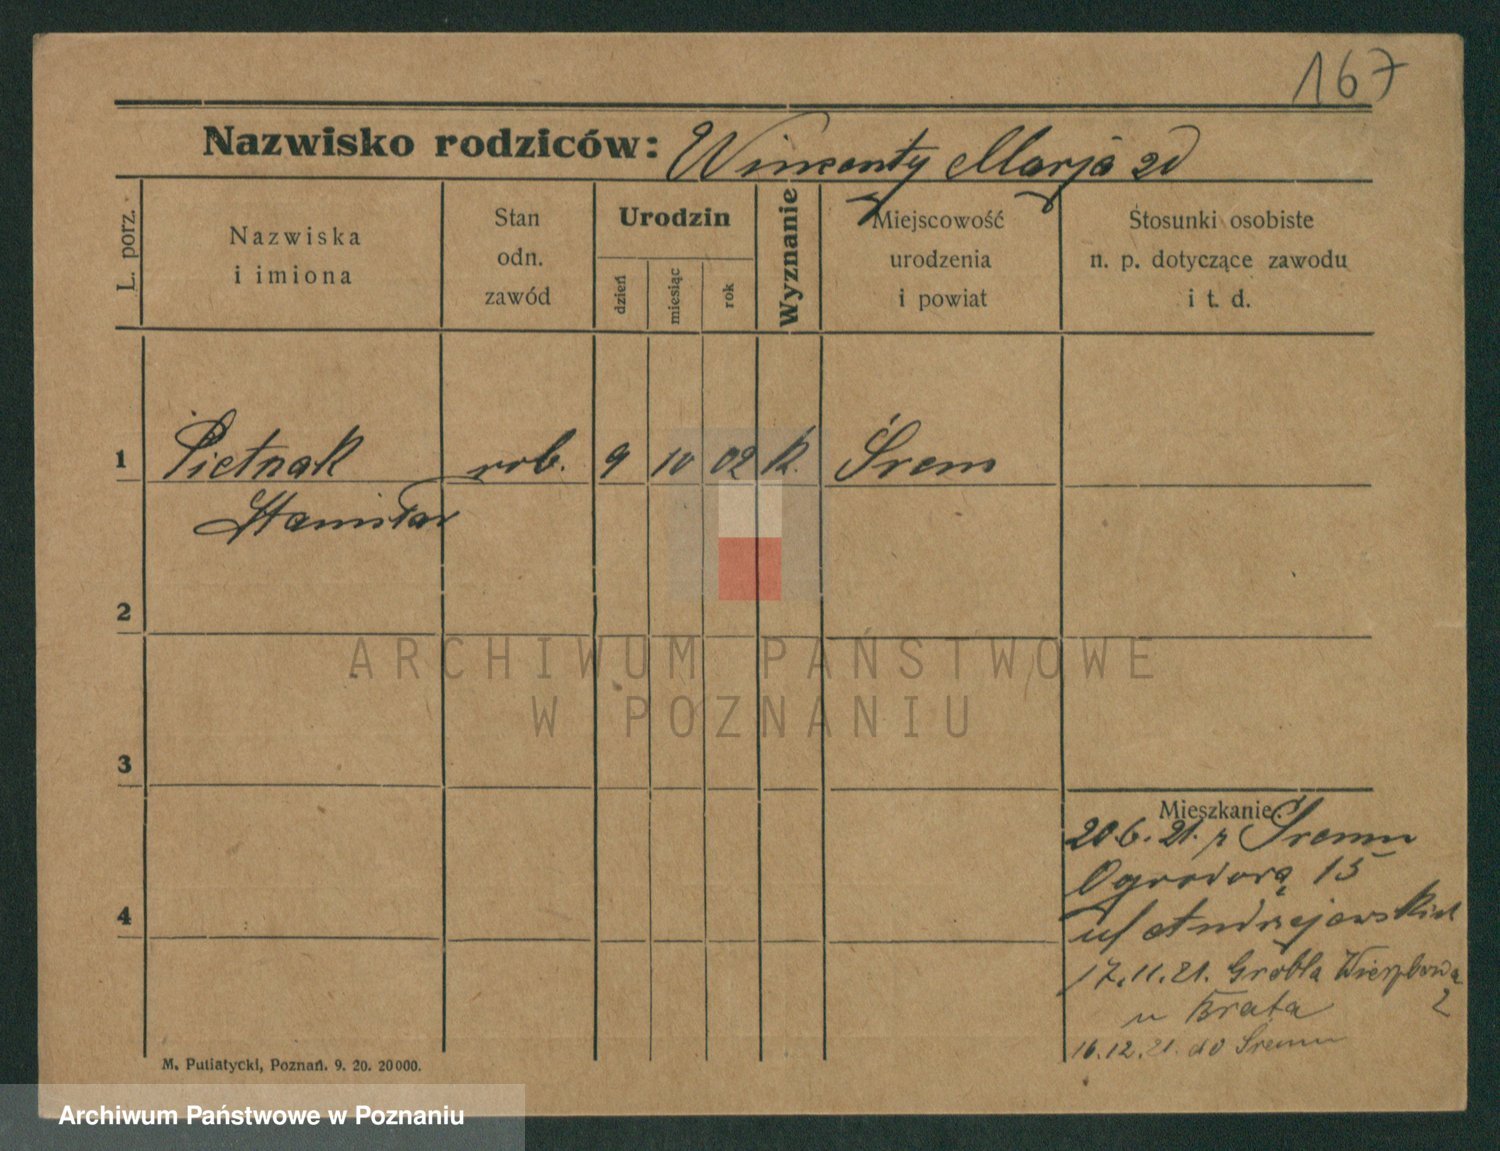 167
Nazwisko rodziców: Wincenty Marja zd
L. porz.
Nazwiska
i imiona
Stan
odn.
zawód
Urodzin
dzień
miesiąc
rok
Wyznanie
Miejscowość
urodzenia
i powiat
Stosunki osobiste
n. p. dotyczące zawodu
i t. d.
1 Pietrzak rob. 9 10 02 k. Śrem
Stanisław
2
3
4
Mieszkanie:
20.6.21. z Śremu
Ogrodowa 15
ul Andrzejewskich
17.11.21. Grobla Wierzbowa
2
u Brata
16.12.21. do Śremu
M. Putiatycki, Poznań. 9. 20. 20000.
ARCHIWUM PAŃSTWOWE
W POZNANIU
Archiwum Państwowe w Poznaniu